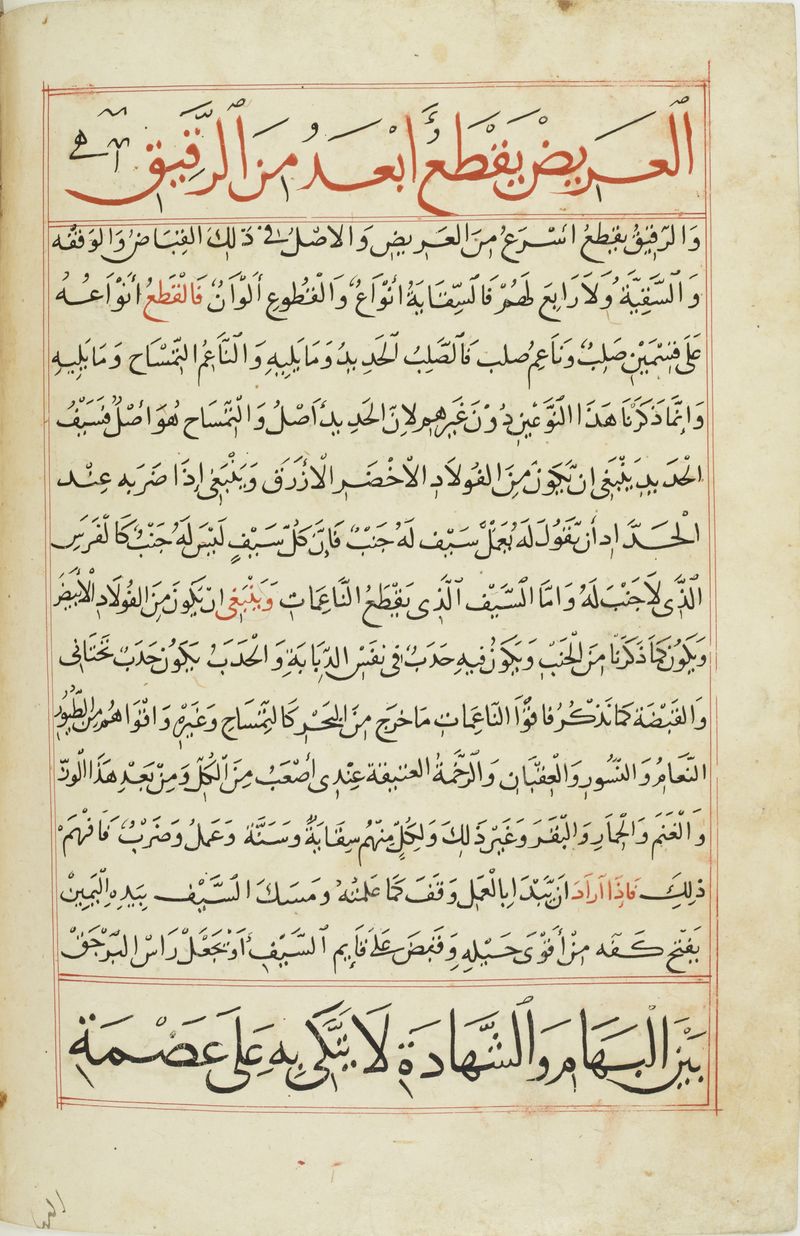 العريض يقطع أبعد من الرقيق
والرقيق يقطع اسرع من العريض والاصل في ذلك القباض والوقفه
والسقية ولا رابع لهم فالسقاية أنواع والقطوع ألوان فالقطع أنواعه
على قسمين صلب وناعم صلب فالصلب الحديد وما يليه والناعم التمساح وما يليه
وإنما ذكرنا هذا النوعين دون غيرهم لان الحديد أصل والتمساح هو أصل فسيف
الحديد ينبغي ان يكون من الفولاد الاخضر الازرق وينبغي إذا ضربه عند
الحداد أن تقول له يعمل سيف له جنب فإن كل سيف ليس له جنب كالفرس
الذي لا جنب له واما السيف الذي يقطع الناعمات وينبغي ان يكون من الفولاد الأبيض
ويكون كما ذكرنا من الجنب ويكون فيه حدب في نفس الدبابة والحدب يكون حدب تحتاني
والقبضة كما نذكر فاقوا الناعمات ما خرج من البحر كالتمساح وغيره واقواهم من الطيور
النعام والنسور والعقبان والرخمة العتيقة عندي أصعب من الكل ومن بعد هذا الوز
والغنم والحمار والبقر وغير ذلك ولكل منهم سقاية وسنة وعمل وضرب فافهم
ذلك فاذا اراد ان يبدا بالعمل وقف كما علمته ومسك السيف بيده اليمين
يفتح كفه من أقوى حيله وقبض على قايم السيف أو تجعل راس البرجق
بين البهام والشهادة لا يتكي به على عصمة